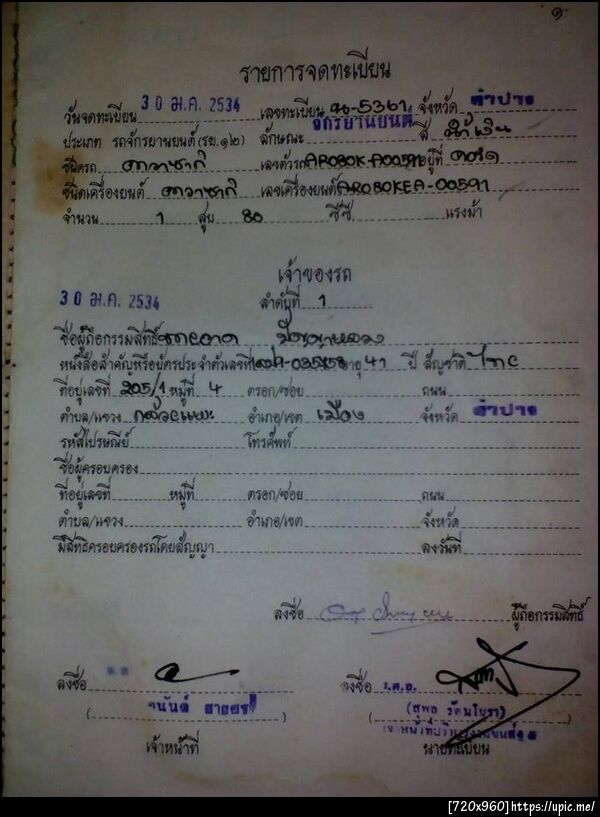 ๑
รายการจดทะเบียน
วันจดทะเบียน 30 ม.ค. 2534 เลขทะเบียน -5361 จังหวัด ลำปาง
ประเภท รถจักรยานยนต์(รย.๑๒) ลักษณะ จักรยานยนต์ สี น้ำเงิน
ชนิดรถ คาวาซากิ เลขตัวรถ AR080K-A00591 อยู่ที่
ชนิดเครื่องยนต์ คาวาซากิ เลขเครื่องยนต์ AR080KEA-00591
จำนวน 1 สูบ 80 ซีซี แรงม้า
เจ้าของรถ
30 ม.ค. 2534 ลำดับที่ 1
ชื่อผู้ถือกรรมสิทธิ์
หนังสือสำคัญหรือบัตรประจำตัวเลขที่ อายุ 41 ปี สัญชาติ ไทย
ที่อยู่เลขที่ 205/1 หมู่ที่ 4 ตรอก/ซอย ถนน
ตำบล/แขวง กล้วยแพะ อำเภอ/เขต เมือง จังหวัด ลำปาง
รหัสไปรษณีย์ โทรศัพท์
ชื่อผู้ครอบครอง
ที่อยู่เลขที่ หมู่ที่ ตรอก/ซอย ถนน
ตำบล/แขวง อำเภอ/เขต จังหวัด
มีสิทธิครอบครองรถโดยสัญญา ลงวันที่
ลงชื่อ ผู้ถือกรรมสิทธิ์
ลงชื่อ ลงชื่อ
อนันต์ (สุพล รัตนโยรา)
เจ้าหน้าที่ นายทะเบียน
[720x960] https://upic.me/